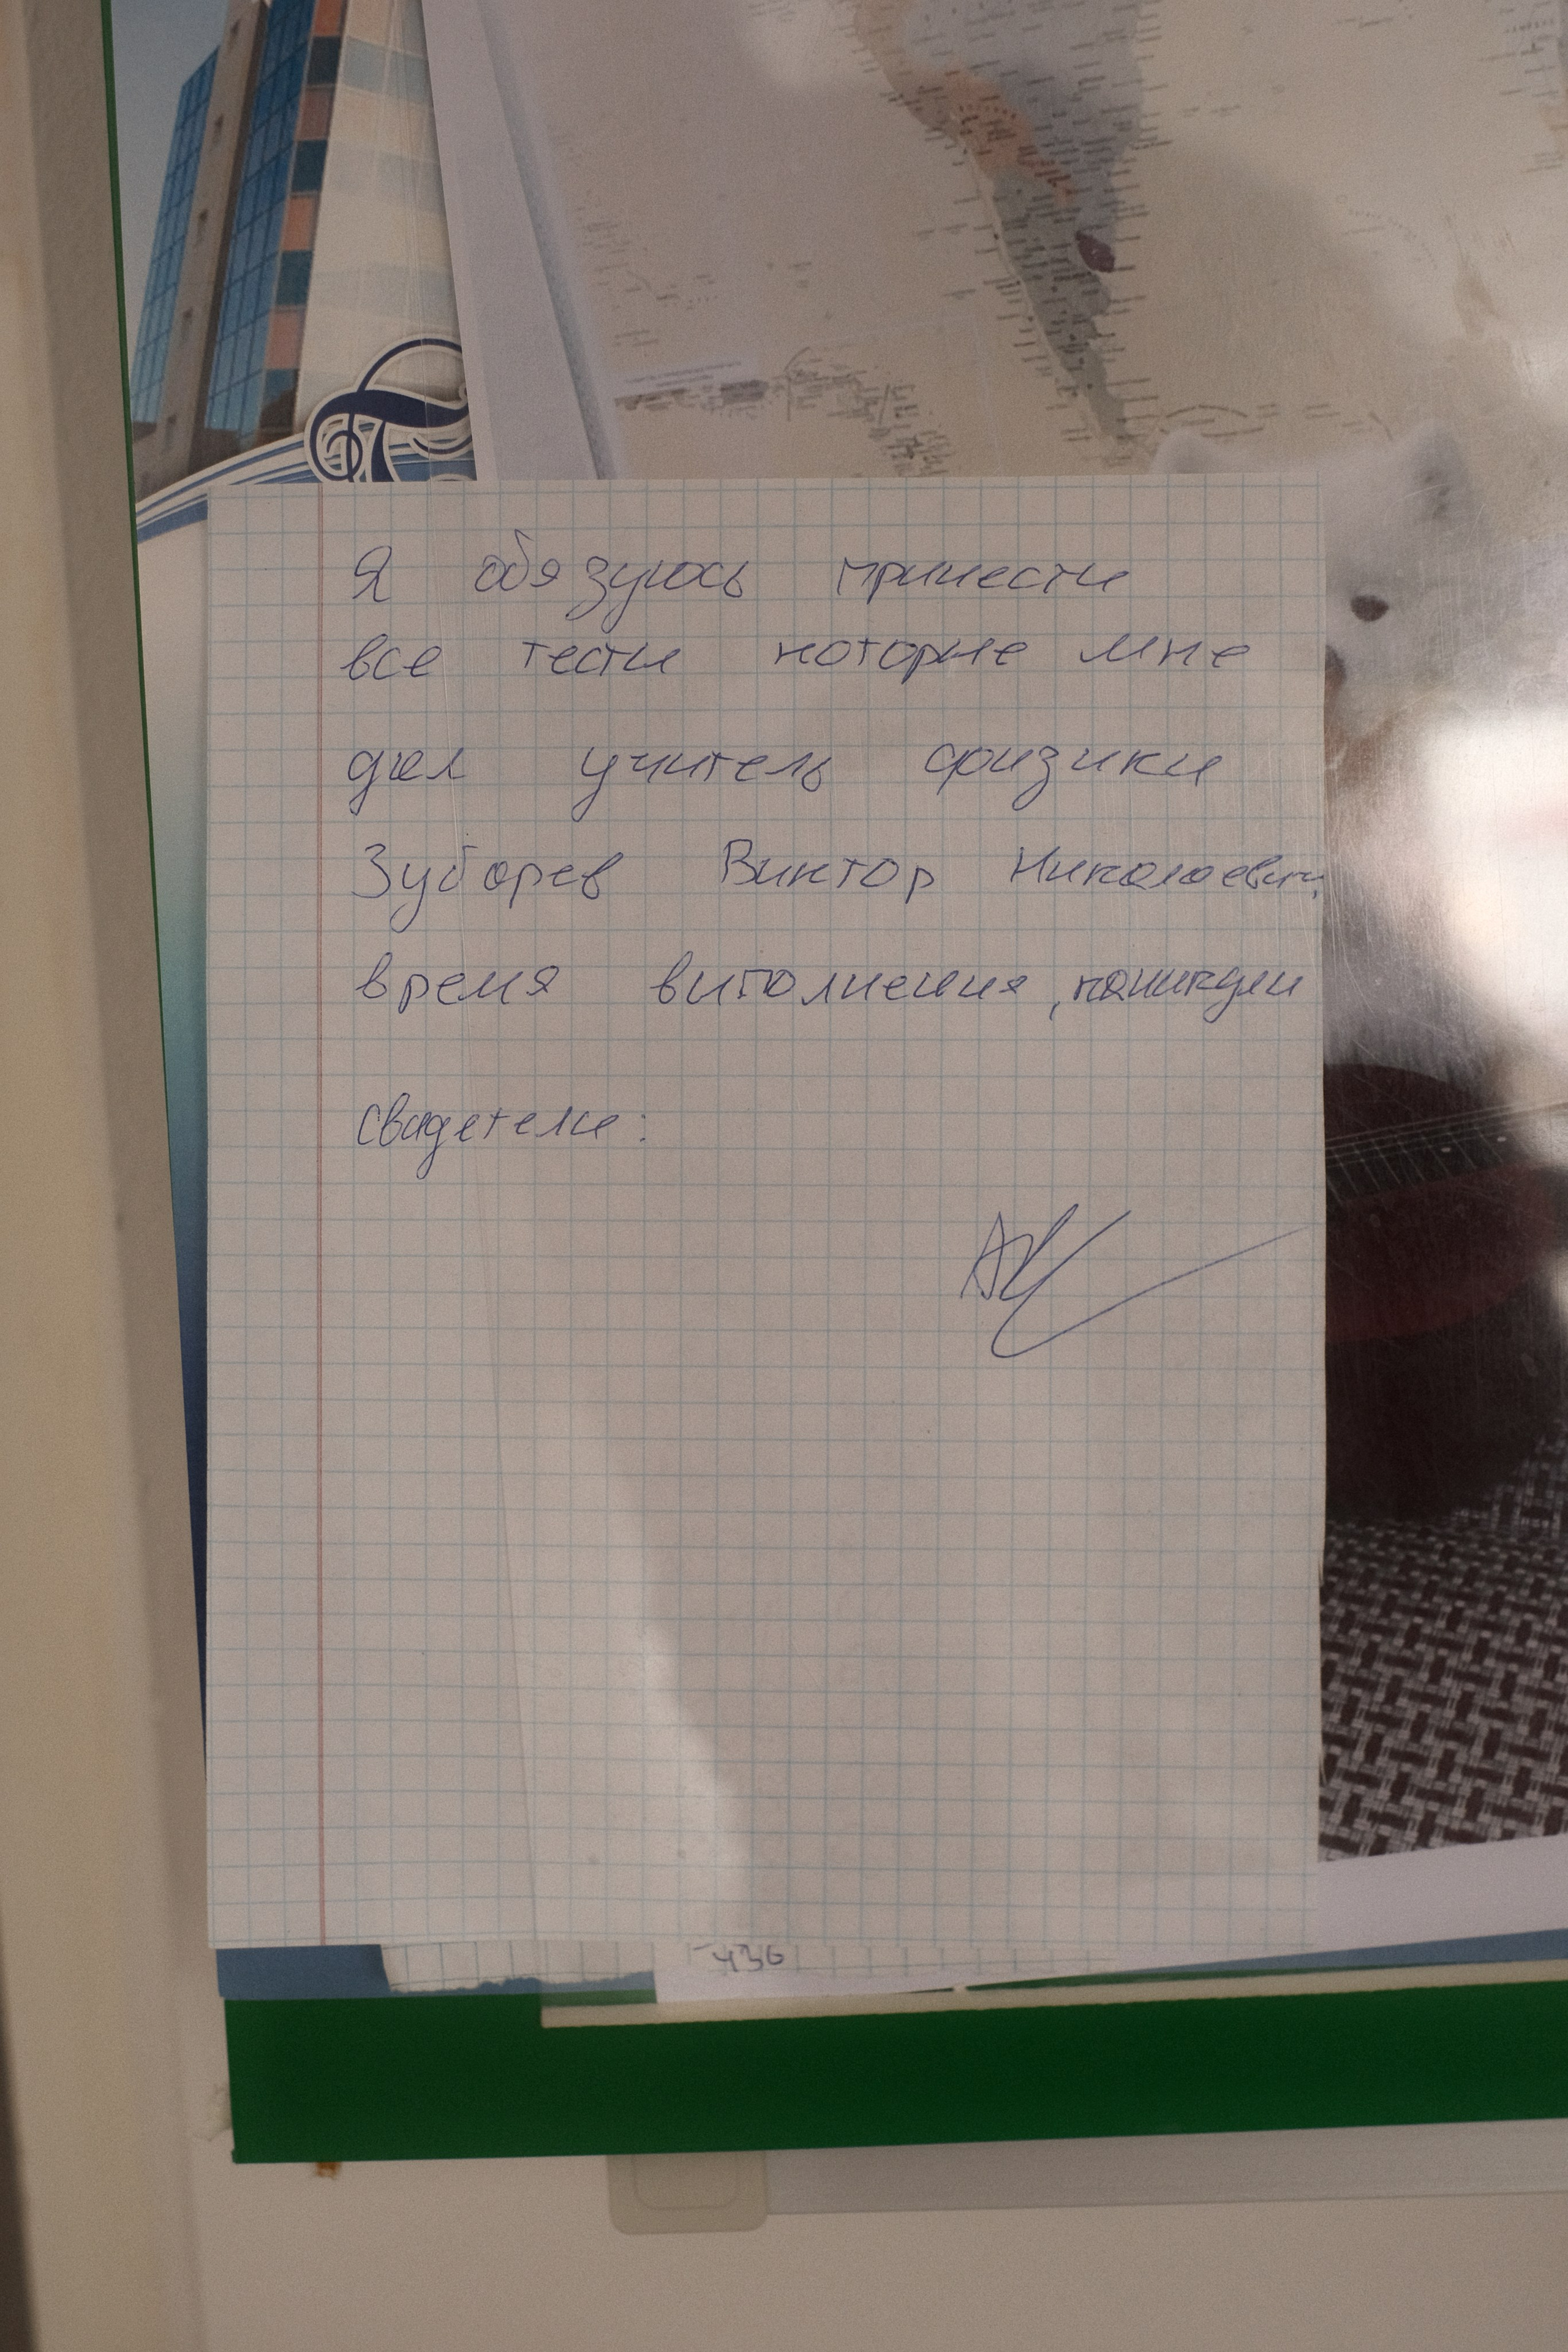 Я обязуюсь принести
все тести которие мне
дал учитель физики
Зубарев Виктор Николаевич,
время виполнения, каникули
Свидетели:
436